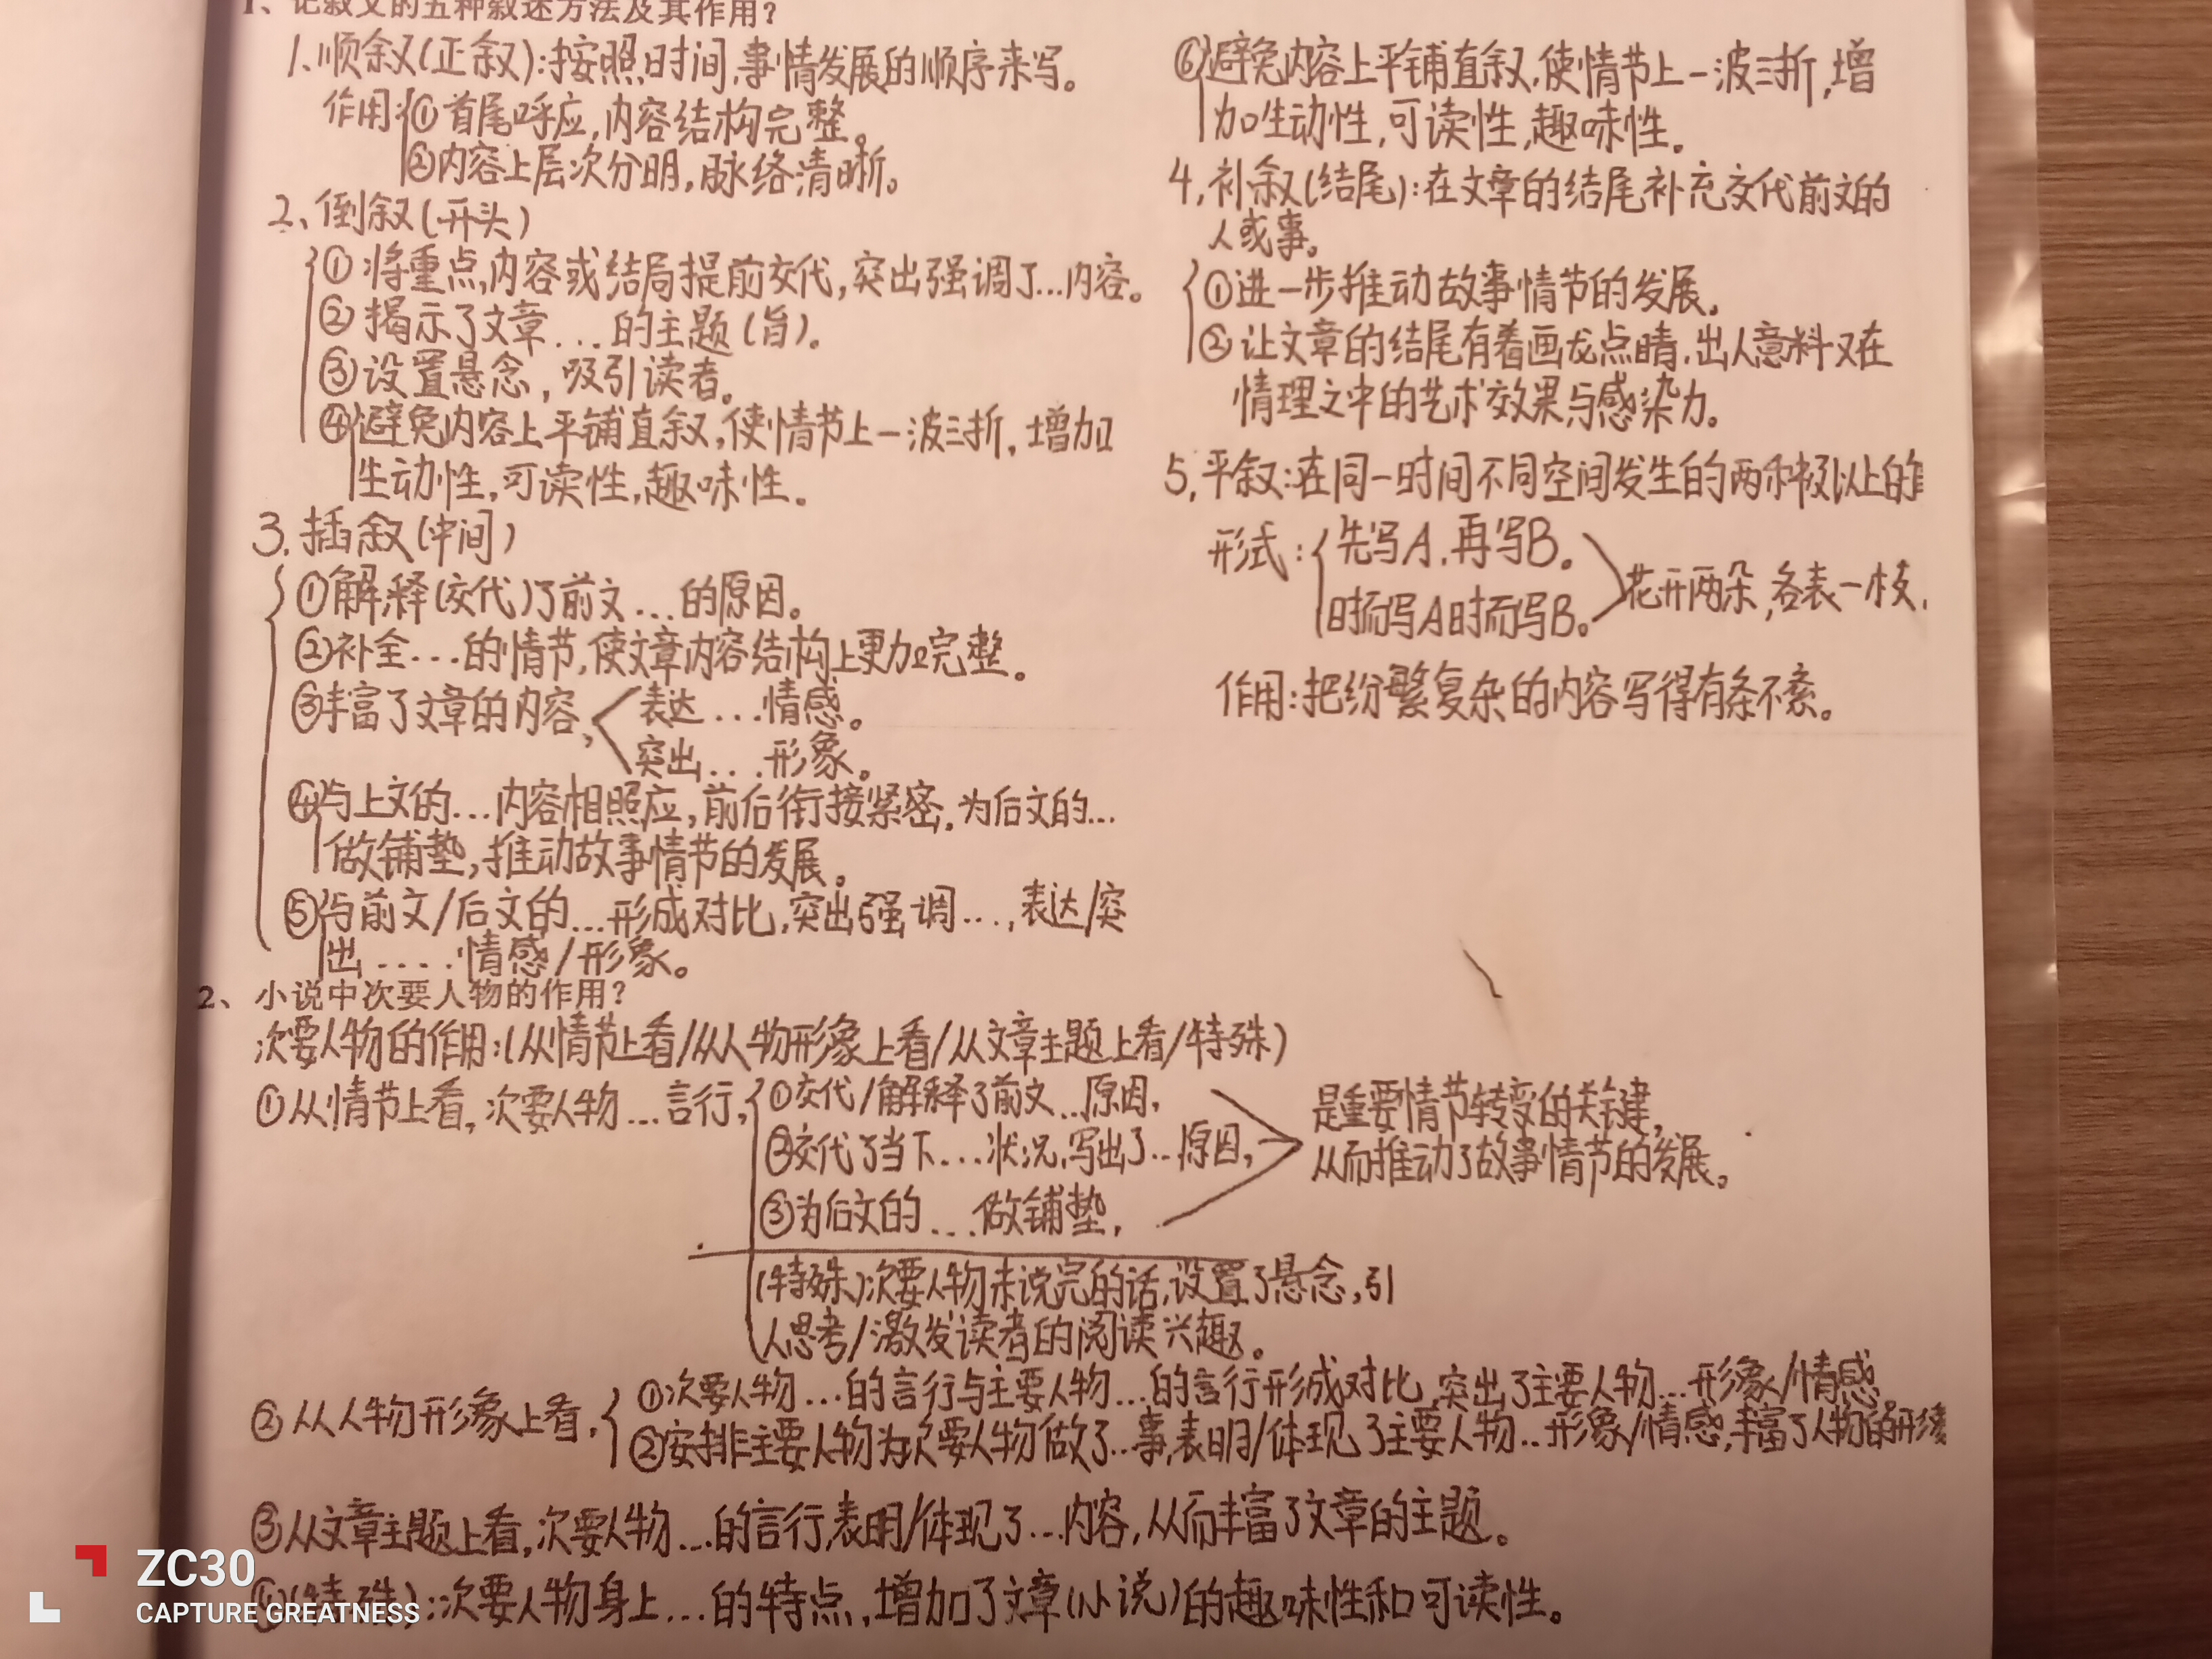 1、记叙文的五种叙述方法及其作用？
1、顺叙(正叙):按照时间,事情发展的顺序来写。
作用:①首尾呼应,内容结构完整。
②内容上层次分明,脉络清晰。
2、倒叙(开头)
①将重点,内容或结局提前交代,突出强调了...内容。
②揭示了文章...的主题(旨)。
③设置悬念,吸引读者。
④避免内容上平铺直叙,使情节上一波三折,增加
生动性,可读性,趣味性。
3.插叙(中间)
①解释(交代)了前文...的原因。
②补全...的情节,使文章内容结构上更加完整。
③丰富了文章的内容,
表达...情感。
突出...形象。
④与上文的...内容相照应,前后衔接紧密,为后文的...
做铺垫,推动故事情节的发展。
⑤与前文/后文的...形成对比,突出强调...,表达/突
出.....情感/形象。
⑥避免内容上平铺直叙,使情节上一波三折,增
加生动性,可读性,趣味性。
4,补叙(结尾):在文章的结尾补充交代前文的
人或事。
①进一步推动故事情节的发展。
②让文章的结尾有着画龙点睛,出人意料又在
情理之中的艺术效果与感染力。
5,平叙:在同一时间不同空间发生的两种及以上的
形式:
先写A,再写B。
时而写A时而写B。
花开两朵,各表一枝,
作用:把纷繁复杂的内容写得有条不紊。
2、小说中次要人物的作用？
次要人物的作用:(从情节上看/从人物形象上看/从文章主题上看/特殊)
①从情节上看,次要人物...言行,
①交代/解释了前文...原因,
②交代了当下...状况,写出了...原因,
③为后文的...做铺垫,
是重要情节转变的关键,
从而推动了故事情节的发展。
(特殊)次要人物未说完的话,设置了悬念,引
人思考/激发读者的阅读兴趣。
②从人物形象上看,
①次要人物...的言行与主要人物...的言行形成对比,突出了主要人物...形象/情感
②安排主要人物为次要人物做了...事,表明/体现了主要人物...形象/情感,丰富了人物的形象
③从文章主题上看,次要人物...的言行,表明/体现了...内容,从而丰富了文章的主题。
④(特殊):次要人物身上...的特点,增加了文章(小说)的趣味性和可读性。
ZC30
CAPTURE GREATNESS